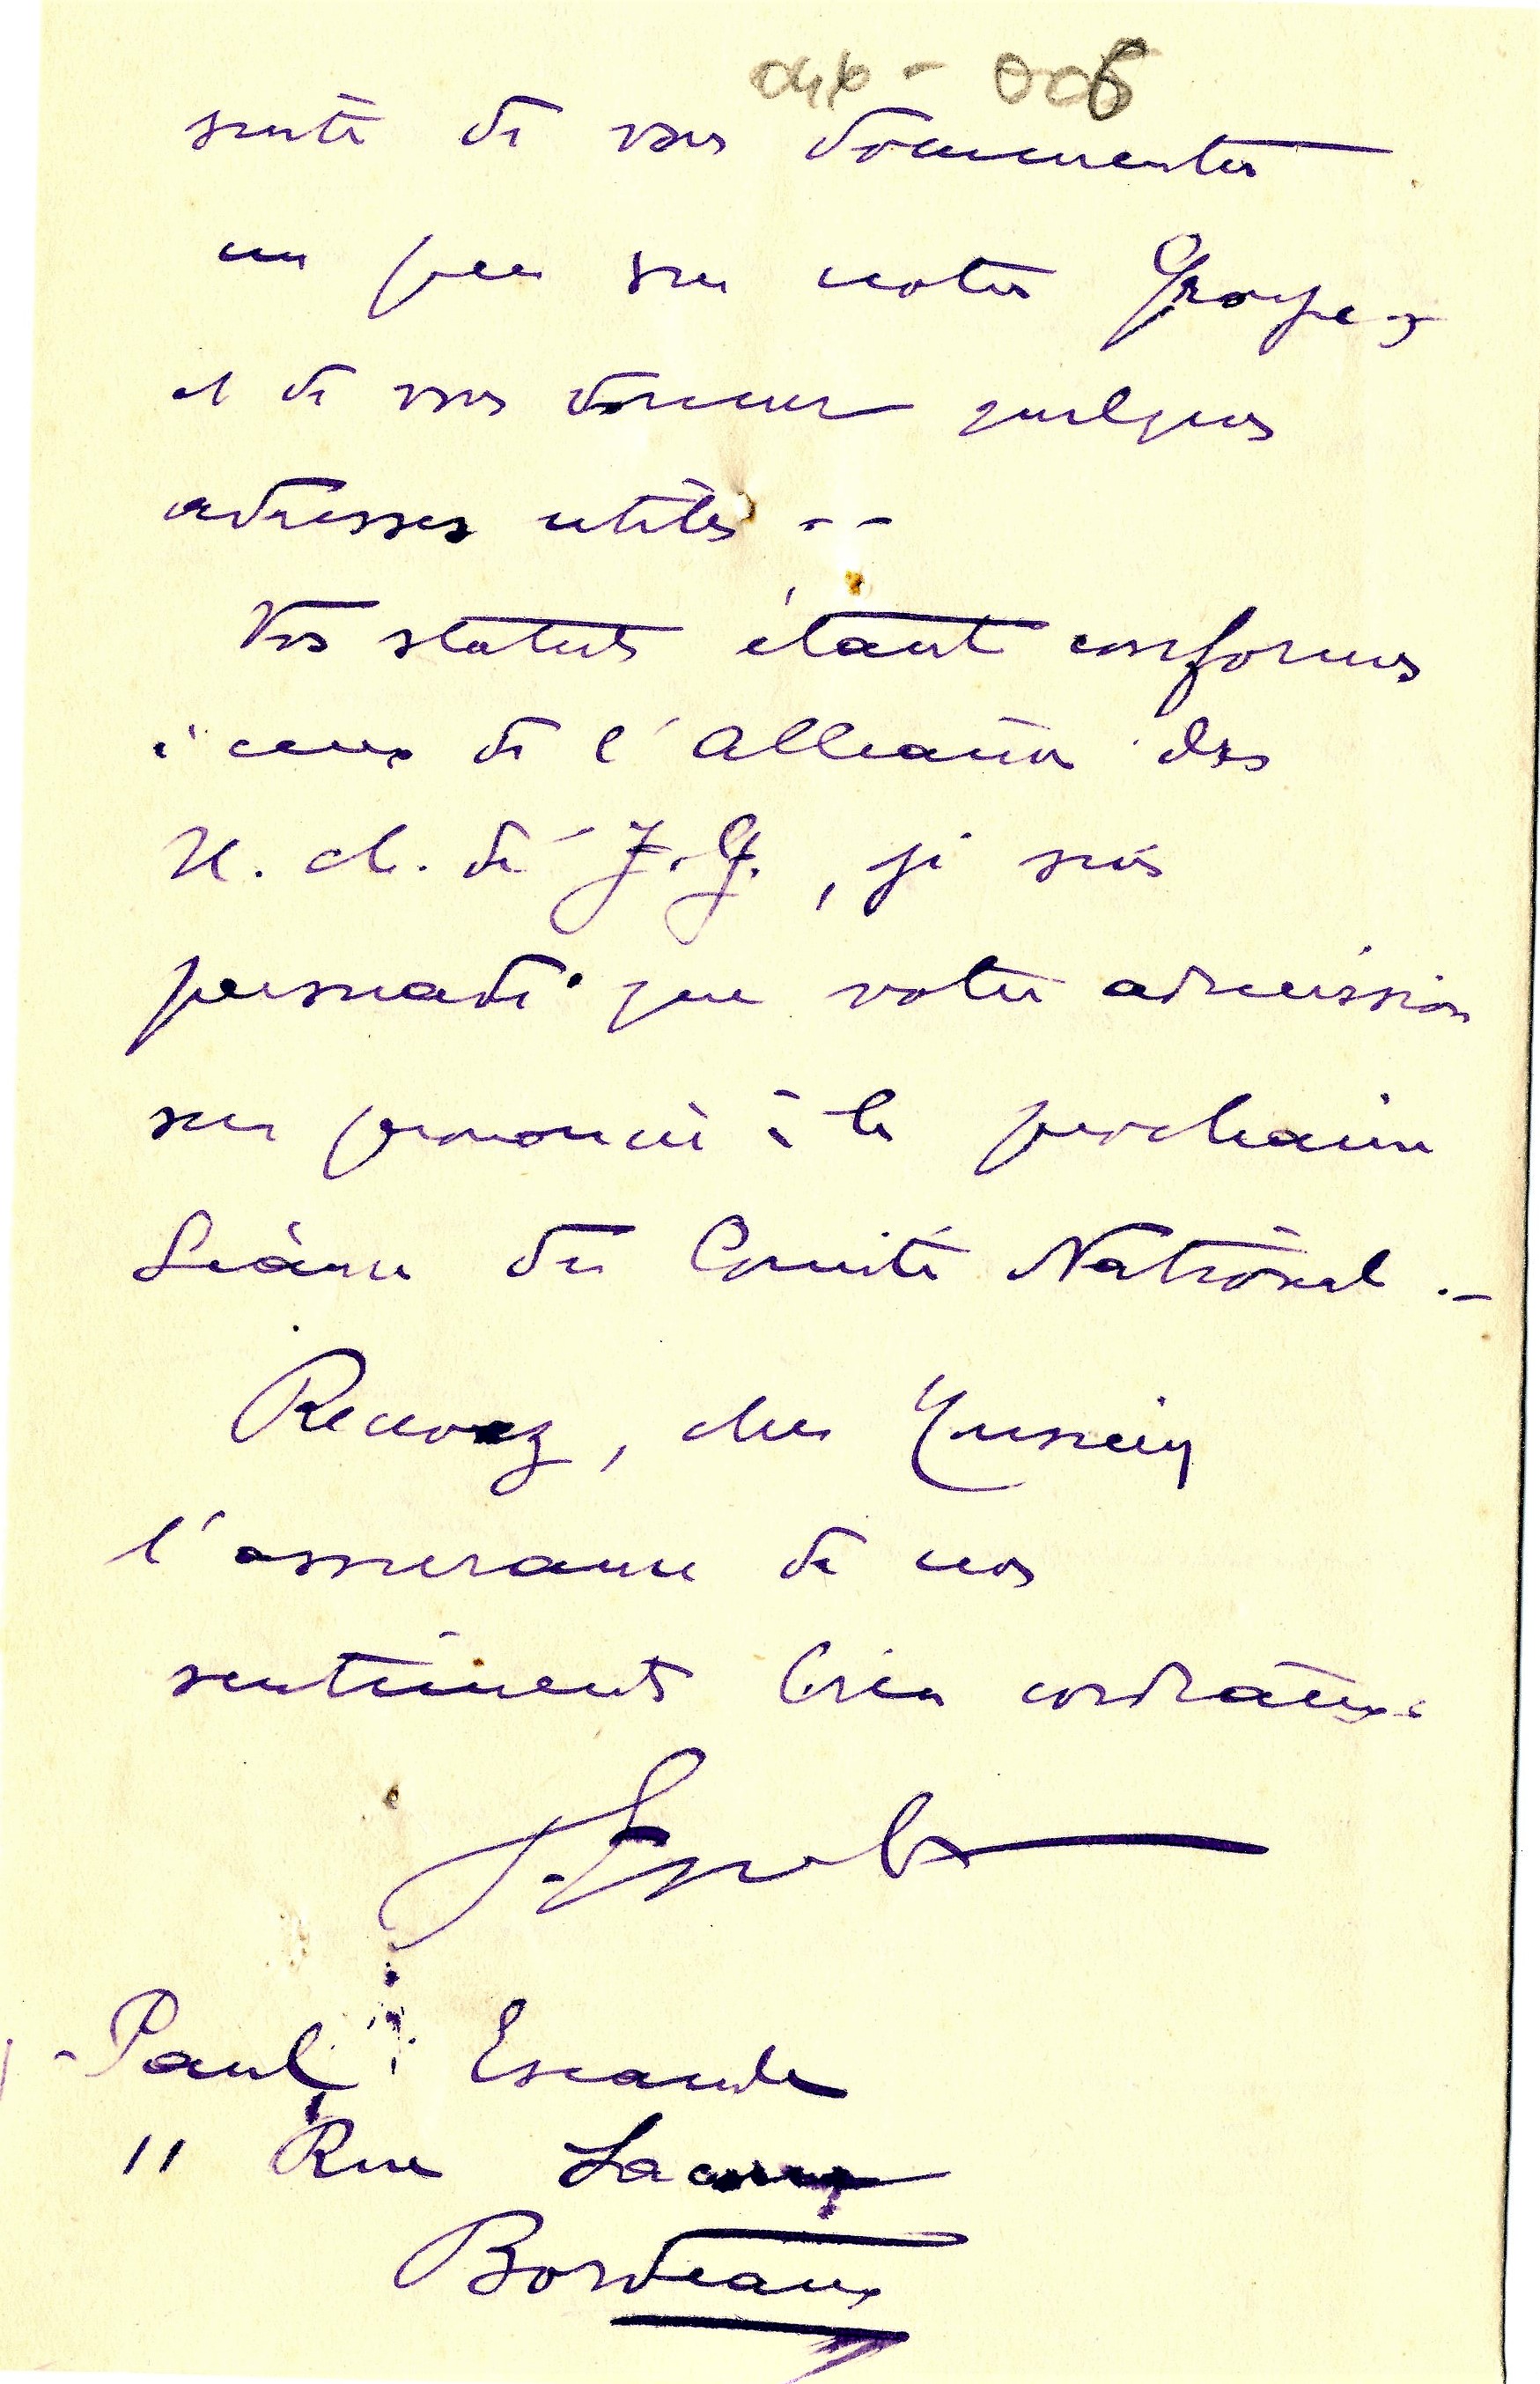 046 - 006
senté de vous documenter
un peu sur notre Groupe
et de vous donner quelques
adresses utiles --
Vos statuts étant conformes
à ceux de l'Alliance des
U. ch. de J. G., je suis
persuadé que votre admission
sera prononcée à la prochaine
Séance du Comité National .-
Recevez, cher Monsieur
l'assurance de nos
sentiments bien cordiaux.
Paul Escande
11 Rue
Bordeaux